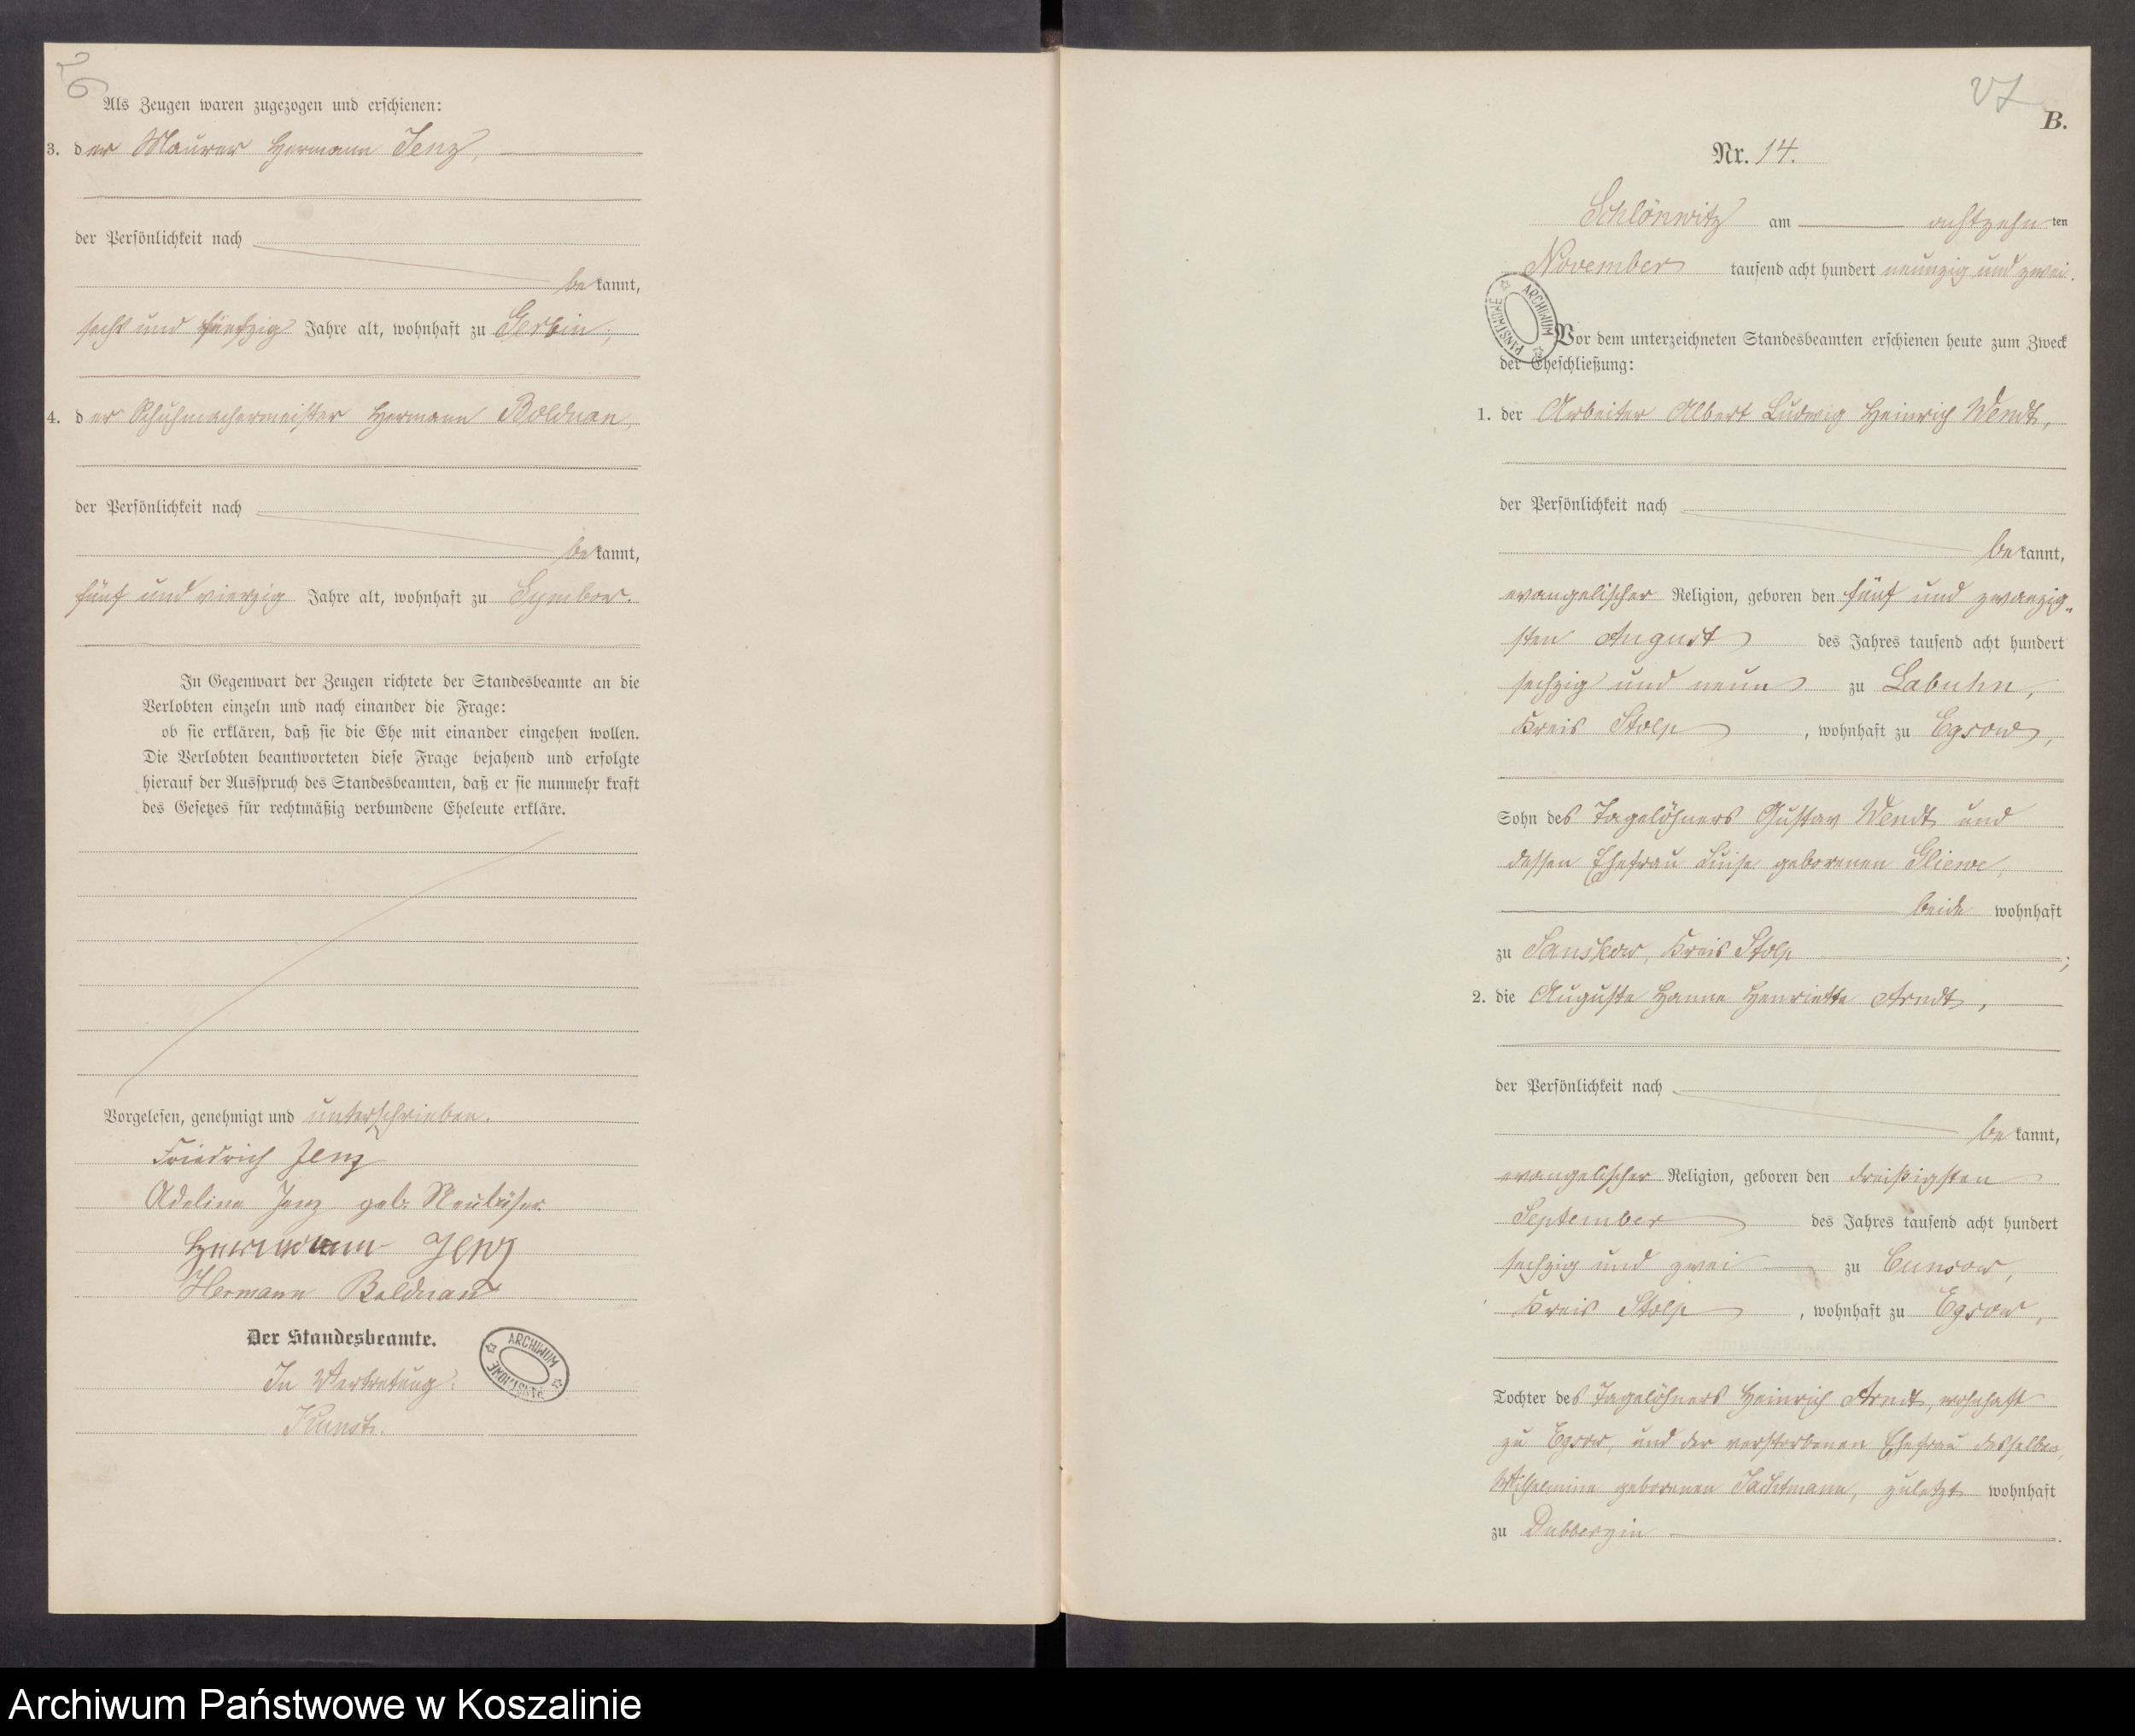 26
Als Zeugen waren zugezogen und erschienen:
3. der Maurer Hermann Jenz,
der Persönlichkeit nach
bekannt,
sechs und fünfzig Jahre alt, wohnhaft zu Gerbin;
4. der Schuhmachermeister Hermann Bolduan,
der Persönlichkeit nach
bekannt,
fünf und vierzig Jahre alt, wohnhaft zu Symbow.
In Gegenwart der Zeugen richtete der Standesbeamte an die
Verlobten einzeln und nach einander die Frage:
ob sie erklären, daß sie die Ehe mit einander eingehen wollen.
Die Verlobten beantworteten diese Frage bejahend und erfolgte
hierauf der Ausspruch des Standesbeamten, daß er sie nunmehr kraft
des Gesetzes für rechtmäßig verbundene Eheleute erkläre.
Vorgelesen, genehmigt und unterschrieben.
Friedrich Jenz
Adeline Jenz geb.
Hermann Jenz
Hermann Bolduan
Der Standesbeamte.
In Vertretung:
ARCHIWUM PAŃSTWOWE
27
B.
Nr. 14.
Schlönwitz am achtzehnten
November tausend acht hundert neunzig und zwei.
ARCHIWUM PAŃSTWOWE
Vor dem unterzeichneten Standesbeamten erschienen heute zum Zweck
der Eheschließung:
1. der Arbeiter Albert Ludwig Heinrich Wendt,
der Persönlichkeit nach
bekannt,
evangelischer Religion, geboren den fünf und zwanzig„
sten August des Jahres tausend acht hundert
sechzig und neun zu Labuhn,
Kreis Stolp, wohnhaft zu Egsow,
Sohn des Tagelöhners Gustav Wendt und
dessen Ehefrau Luise geborenen Gliewe,
beide wohnhaft
zu Sanskow, Kreis Stolp;
2. die Auguste Hanne Henriette Arndt,
der Persönlichkeit nach
bekannt,
evangelischer Religion, geboren den dreißigsten
September des Jahres tausend acht hundert
sechzig und zwei zu Cunsow,
Kreis Stolp, wohnhaft zu Egsow,
Tochter des Tagelöhners Heinrich Arndt, wohnhaft
zu Egsow, und der verstorbenen Ehefrau desselben,
Wilhelmine geborenen Jachtmann, zuletzt wohnhaft
zu Dubberzin.
Archiwum Państwowe w Koszalinie